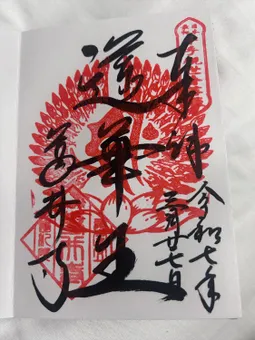 奉拝
令和七年
三月廿七日
蓮華王
葛井寺